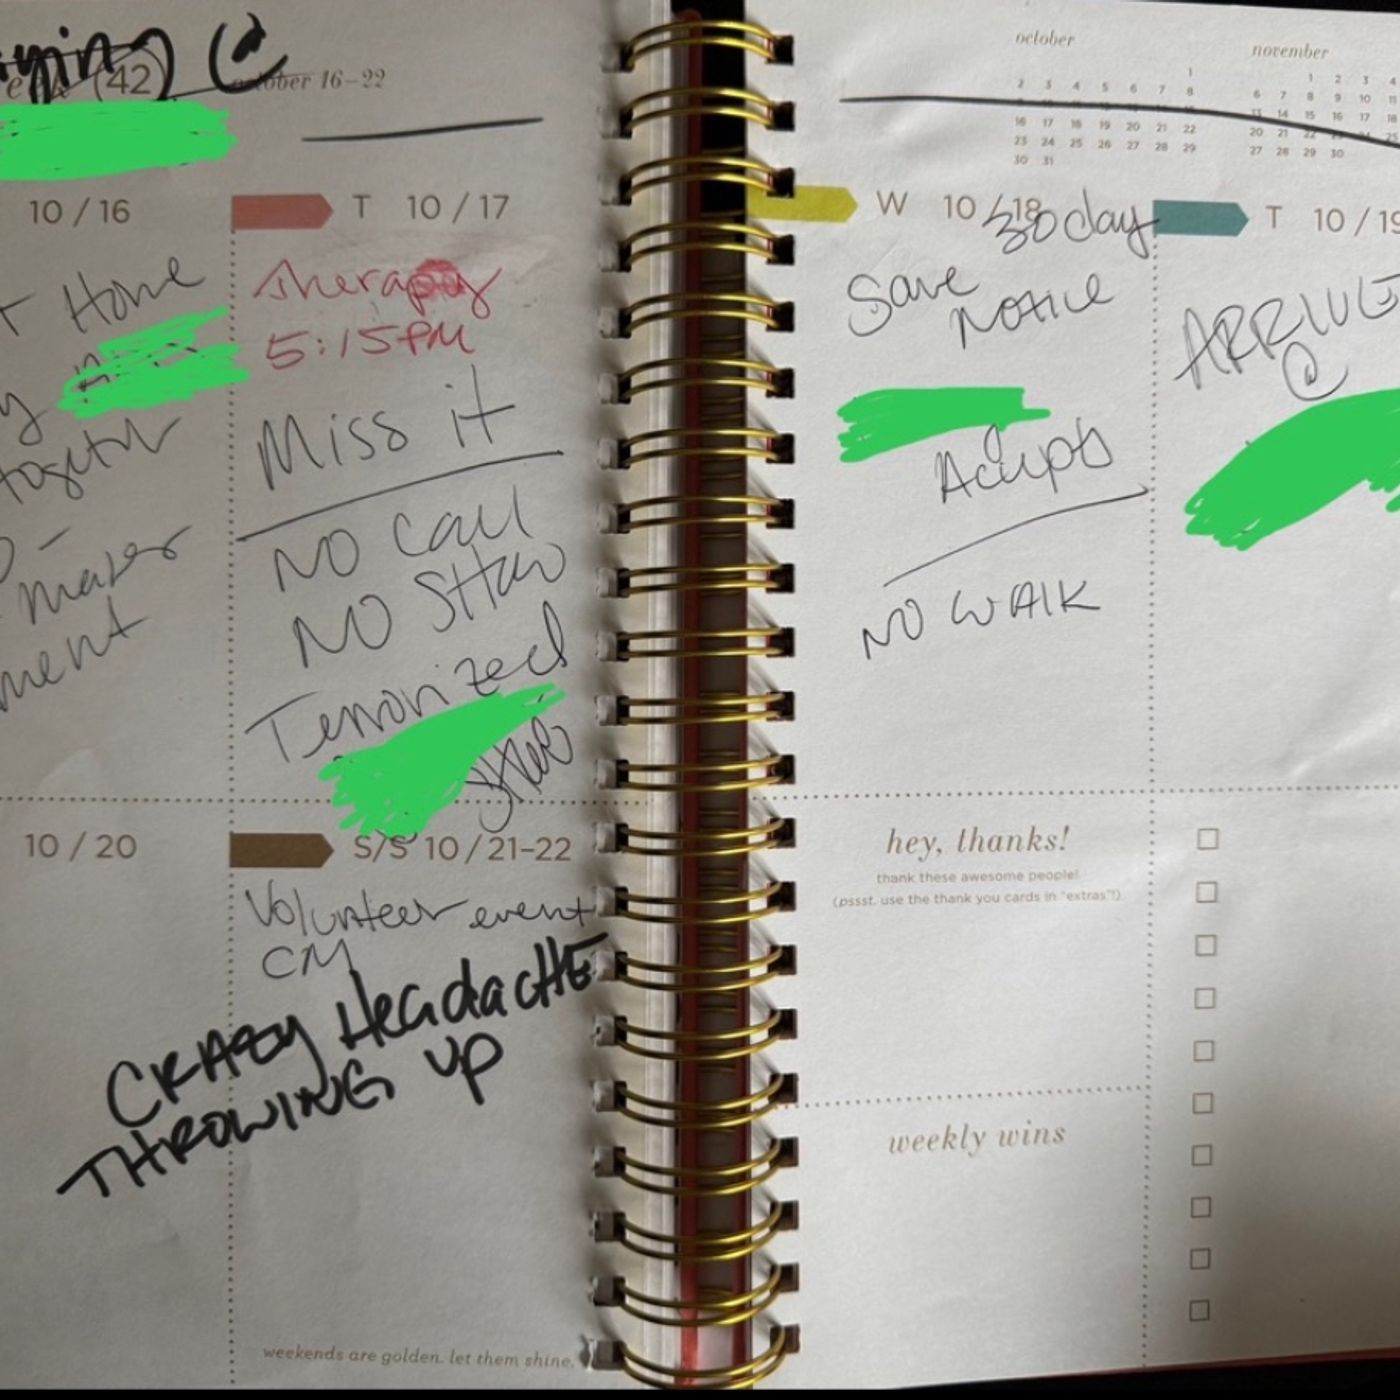 (42)
october 16–22
10 / 16
T 10 / 17
Home
Therapy
5:15 PM
Miss it
togethr
NO Call
NO SHOW
maker
ment
Terrorized
10 / 20
S/S 10 / 21–22
Volunteer event
CM
CRAZY HeadacHE
THROWING UP
weekends are golden. let them shine.
october
1
2 3 4 5 6 7 8
16 17 18 19 20 21 22
23 24 25 26 27 28 29
30 31
november
1 2 3 4
6 7 8 9 10 11
13 14 15 16 17 18
20 21 22 23 24 25
27 28 29 30
W 10 / 18
30 day
Save
Notice
NO WALK
T 10 / 19
ARRIVE
@
hey, thanks!
thank these awesome people!
(pssst. use the thank you cards in "extras"!)
weekly wins